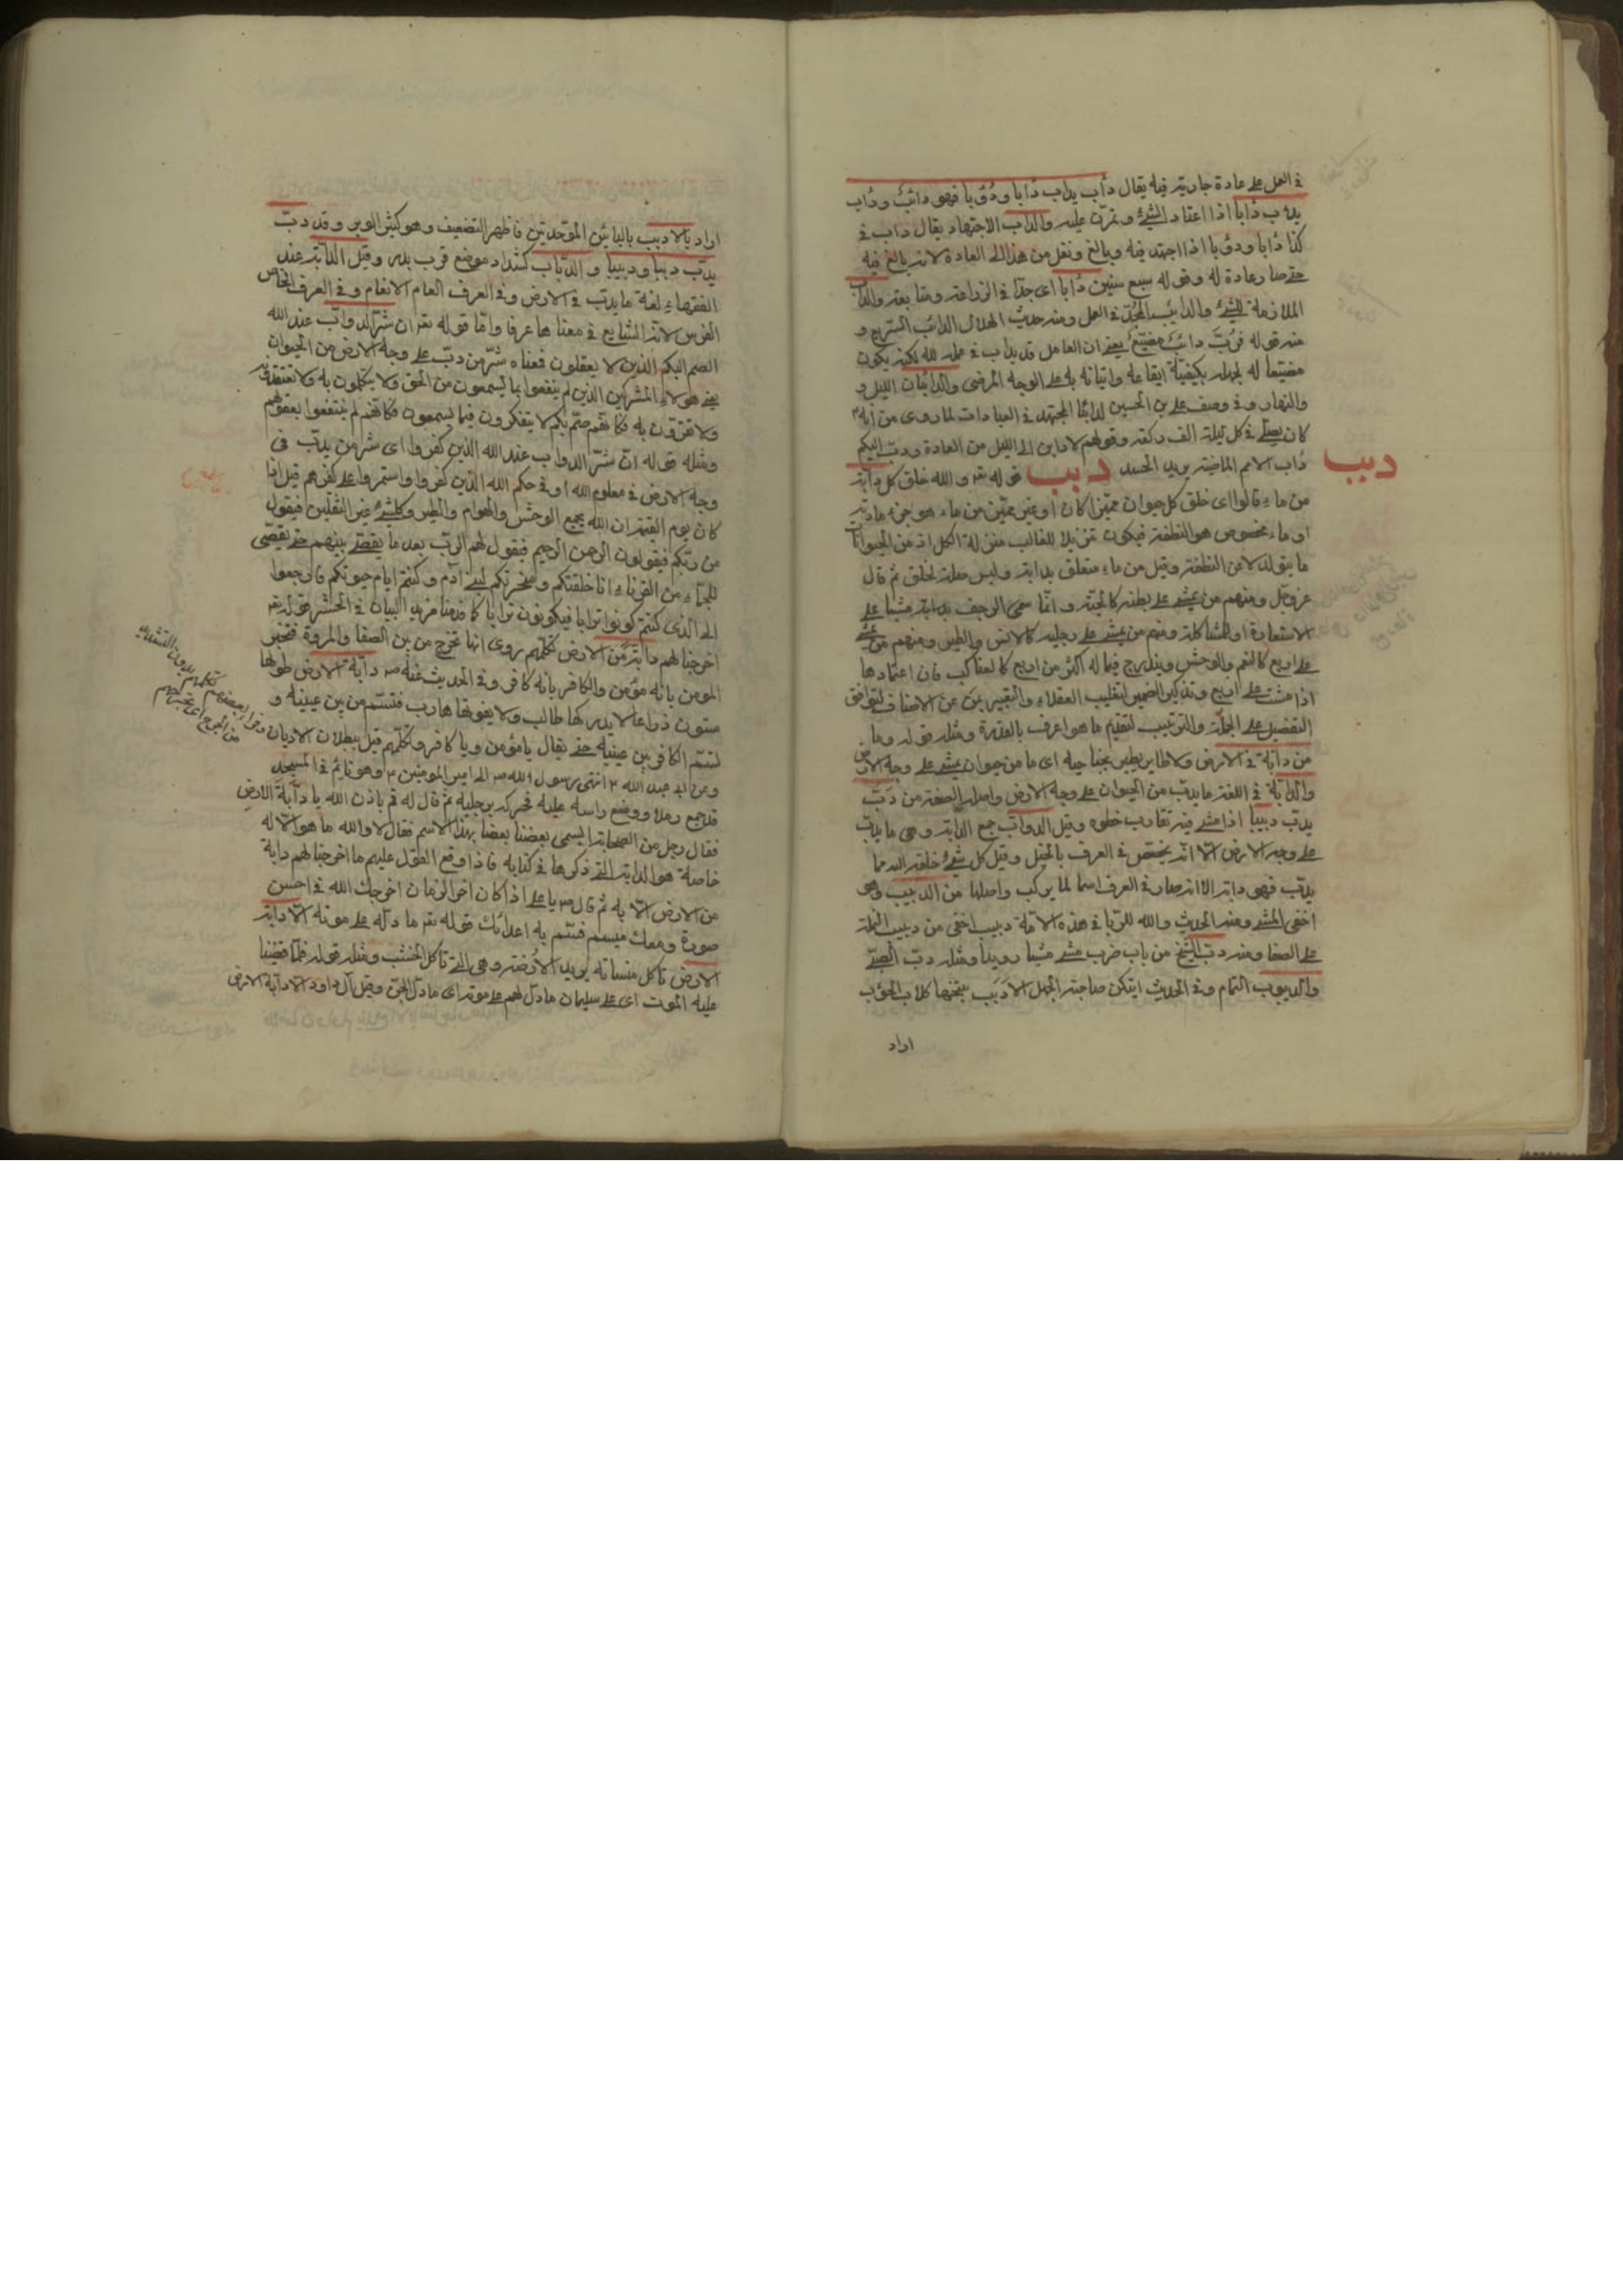 في العمل على عادة جارية فيه يقال دأب يداب دأبا ودُؤبا فهو دائب ودأب
يدؤب دأبا اذا اعتاد الشئ وتمرّن عليه والداب الاجتهاد يقال داب في
كذا دأبا ودؤبا اذا اجتهد فيه وبالغ ونقل من هذا الى العادة لانه بالغ فيه
حتى صار عادة له وقوله سبع سنين دأبا اى جدّا في الزراعة ومتابعة والداب
الملازمة للشئ والدائب المجدّ في العمل ومنه حديث الهلال الدائب السريع و
منه قوله فربّ دائب مضيّع يعنى ان العامل قد يداب في عمله لله لكنه يكون
مضيّعا له لجهله بكيفية ايقاعه واتيانه به على الوجه المرضى والدائبات الليل و
والنهار وفي وصف على بن الحسين لدائبا المجتهد في العبادات لما روى من انه
كان يصلّى في كل ليلة الف ركعة وقولهم لا دابن الى الليل من العادة ودبّ اليكم
دأب الامم الماضية يريد الحسد دبب قوله تعـ والله خلق كل دابة
دبب
من ماء قالوا اى خلق كل حيوان مميّزا كان او غير مميّز من ماء هو جزء مادته
او ماء مخصوص هو النطفة فيكون تنزيلا للغالب منزلة الكل اذ من الحيوانات
ما يتولد لا عن النطفة وقيل من ماء متعلق بدابة وليس صلة لخلق ثم قال
عزوجل ومنهم من يمشى على بطنه كالحية وانما سمى الزحف بدابة مشيا على
الاستعارة او المشاكلة ومنهم من يمشى على رجليه كالانس والطير ومنهم من يمشى
على اربع كالنعم والوحش ويندرج فيما له اكثر من اربع كالعناكب فان اعتمادها
اذا مشت على اربع وتذكير الضمير لتغليب العقلاء والتعبير بمن عن الاصناف ليوافق
التفصيل على الجملة والترتيب لتقديم ما هو اعرف بالقدرة ومثله قوله وما
من دابة في الارض ولا طاير يطير بجناحيه اى ما من حيوان يمشى على وجه الارض
والدابة في اللغة ما يدبّ من الحيوان على وجه الارض واصله الصفة من دَبّ
يدبّ دبيبا اذا مشى فيه تقارب خطوه وقيل الدوابّ جمع الدابة وهى ما يدبّ
على وجه الارض الّا انه يختص في العرف بالخيل وقيل كل شئ خلقه الله مما
يدبّ فهى دابة الا انه صار في العرف اسما لما يركب واصلها من الدبيب وهو
اخفى المشى ومنه الحديث والله للربا في هذه الامة دبيب اخفى من دبيب النملة
على الصفا ومنه دبّ الشيخ من باب ضرب مشى مشيا رويدا ومثله دبّ الصبىّ
والديبوب النمام وفي الحديث ايتكن صاحبة الجمل الادبب تنبحها كلاب الحؤب
اراد
اراد بالادبب بالبائين الموحدتين فاظهر التضعيف وهو كثير الوبر وقد دبّ
يدبّ دبا ودبيبا والدبّاب كشداد موضع قرب بدر وقيل الدابة عند
الفقهاء لغة ما يدبّ في الارض وفي العرف العام الانعام وفي العرف الخاص
الفرس لانه الشايع في معناها عرفا وامّا قوله تعـ ان شرّ الدوابّ عند الله
الصم البكم الذين لا يعقلون فمعناه شرّ من دبّ على وجه الارض من الحيوان
يعنى هولاء المشركين الذين لم ينتفعوا بما يسمعون من الحق ولا يتكلمون به ولا تعتقدونه
ولا تقرّون به فكانهم صمّ بكم لا يتفكرون فيما يسمعون فكانهم لم ينتفعوا بعقولهم
ومثله قوله انّ شرّ الدواب عند الله الذين كفروا اى شر من يدبّ في
وجه الارض في معلوم الله او في حكم الله الذين كفروا واستمروا على كفرهم قيل اذا
كان يوم القيمة ان الله يجمع الوحش والهوام والطير وكل شئ غير الثقلين فيقول
من ربّكم فيقولون الرحمن الرحيم فيقول لهم الربّ بعد ما يقضى بينهم حتى يقتصّ
للجمّاء من القرناء انا خلقتكم وسخرتكم لبنى آدم وكنتم ايام حيوتكم فارجعوا
الى الذى كنتم كونوا ترابا فيكونون ترابا كما قدمنا مزيد البيان في الحشر قوله تعـ
اخرجنا لهم دابّة من الارض تكلّمهم روى انها تخرج من بين الصفا والمروة فتخبر
المومن بانه مؤمن والكافر بانه كافر وفي الحديث عنه ص دابّة الارض طولها
ستون ذراعا لا يدركها طالب ولا يفوتها هارب فتسم المؤمن بين عينيه و
تسم الكافر بين عينيه حتى يقال يا مؤمن ويا كافر وتكلّمهم قيل ببطلان الاديان
وقرا بعضهم تكلمهم بدون التشديد
من الجرح اى تجرحهم
وعن ابى عبد الله ع انتهى رسول الله ص الى امير المومنين ع وهو نايم في المسجد
قد جمع رملا ووضع راسه عليه فحركه برجليه ثم قال له قم باذن الله يا دابّة الارض
فقال رجل من الصحابة ايسمى بعضنا بعضا بهذا الاسم فقال لا والله ما هو الّا له
خاصة هو الدابة التى ذكرها في كتابه فاذا وقع القول عليهم ما اخرجنا لهم دابة
من الارض الّا به ثم قال ص يا على اذا كان اخر الزمان اخرجك الله في احسن
صورة ومعك ميسم فتسم به اعدائك قوله تعـ ما دلّه على موته الّا دابة
الارض تاكل منساته يريد الارضة وهى التى تاكل الخشب ومثله قوله فلمّا قضينا
عليه الموت اى على سليمان ما دلّ لهم على موته اى ما دلّ الجنّ وقيل آل داود الا دابة الارض